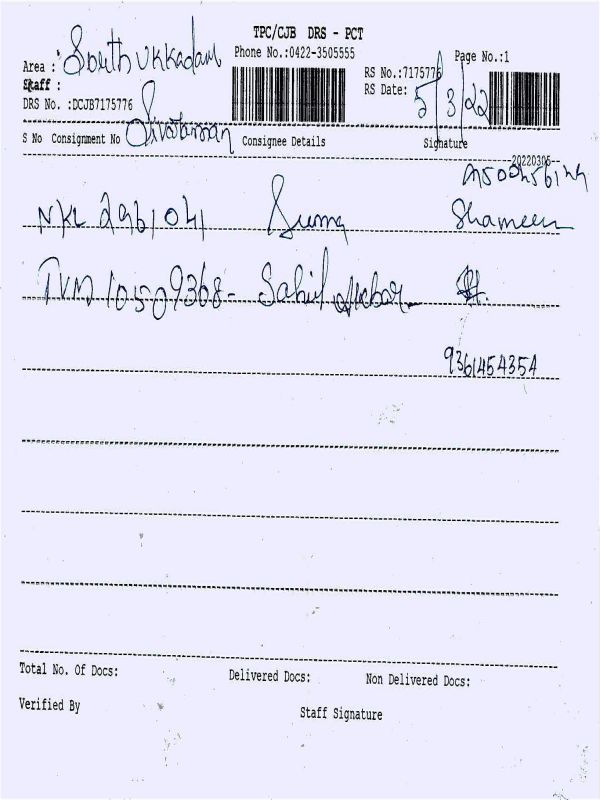 TPC/CJB DRS - PCT
Phone No.:0422-3505555
Page No.:1
Area : South Ukkadam
RS No.:7175776
Staff :
RS Date: 5/3/22
DRS No. :DCJB7175776
Sivaraman
S No Consignment No Consignee Details Signature
20220305
NKL 2961041 Suma Shameem
TVM 101509368- Sahil Akbar
9361454354
Total No. Of Docs: Delivered Docs: Non Delivered Docs:
Verified By Staff Signature